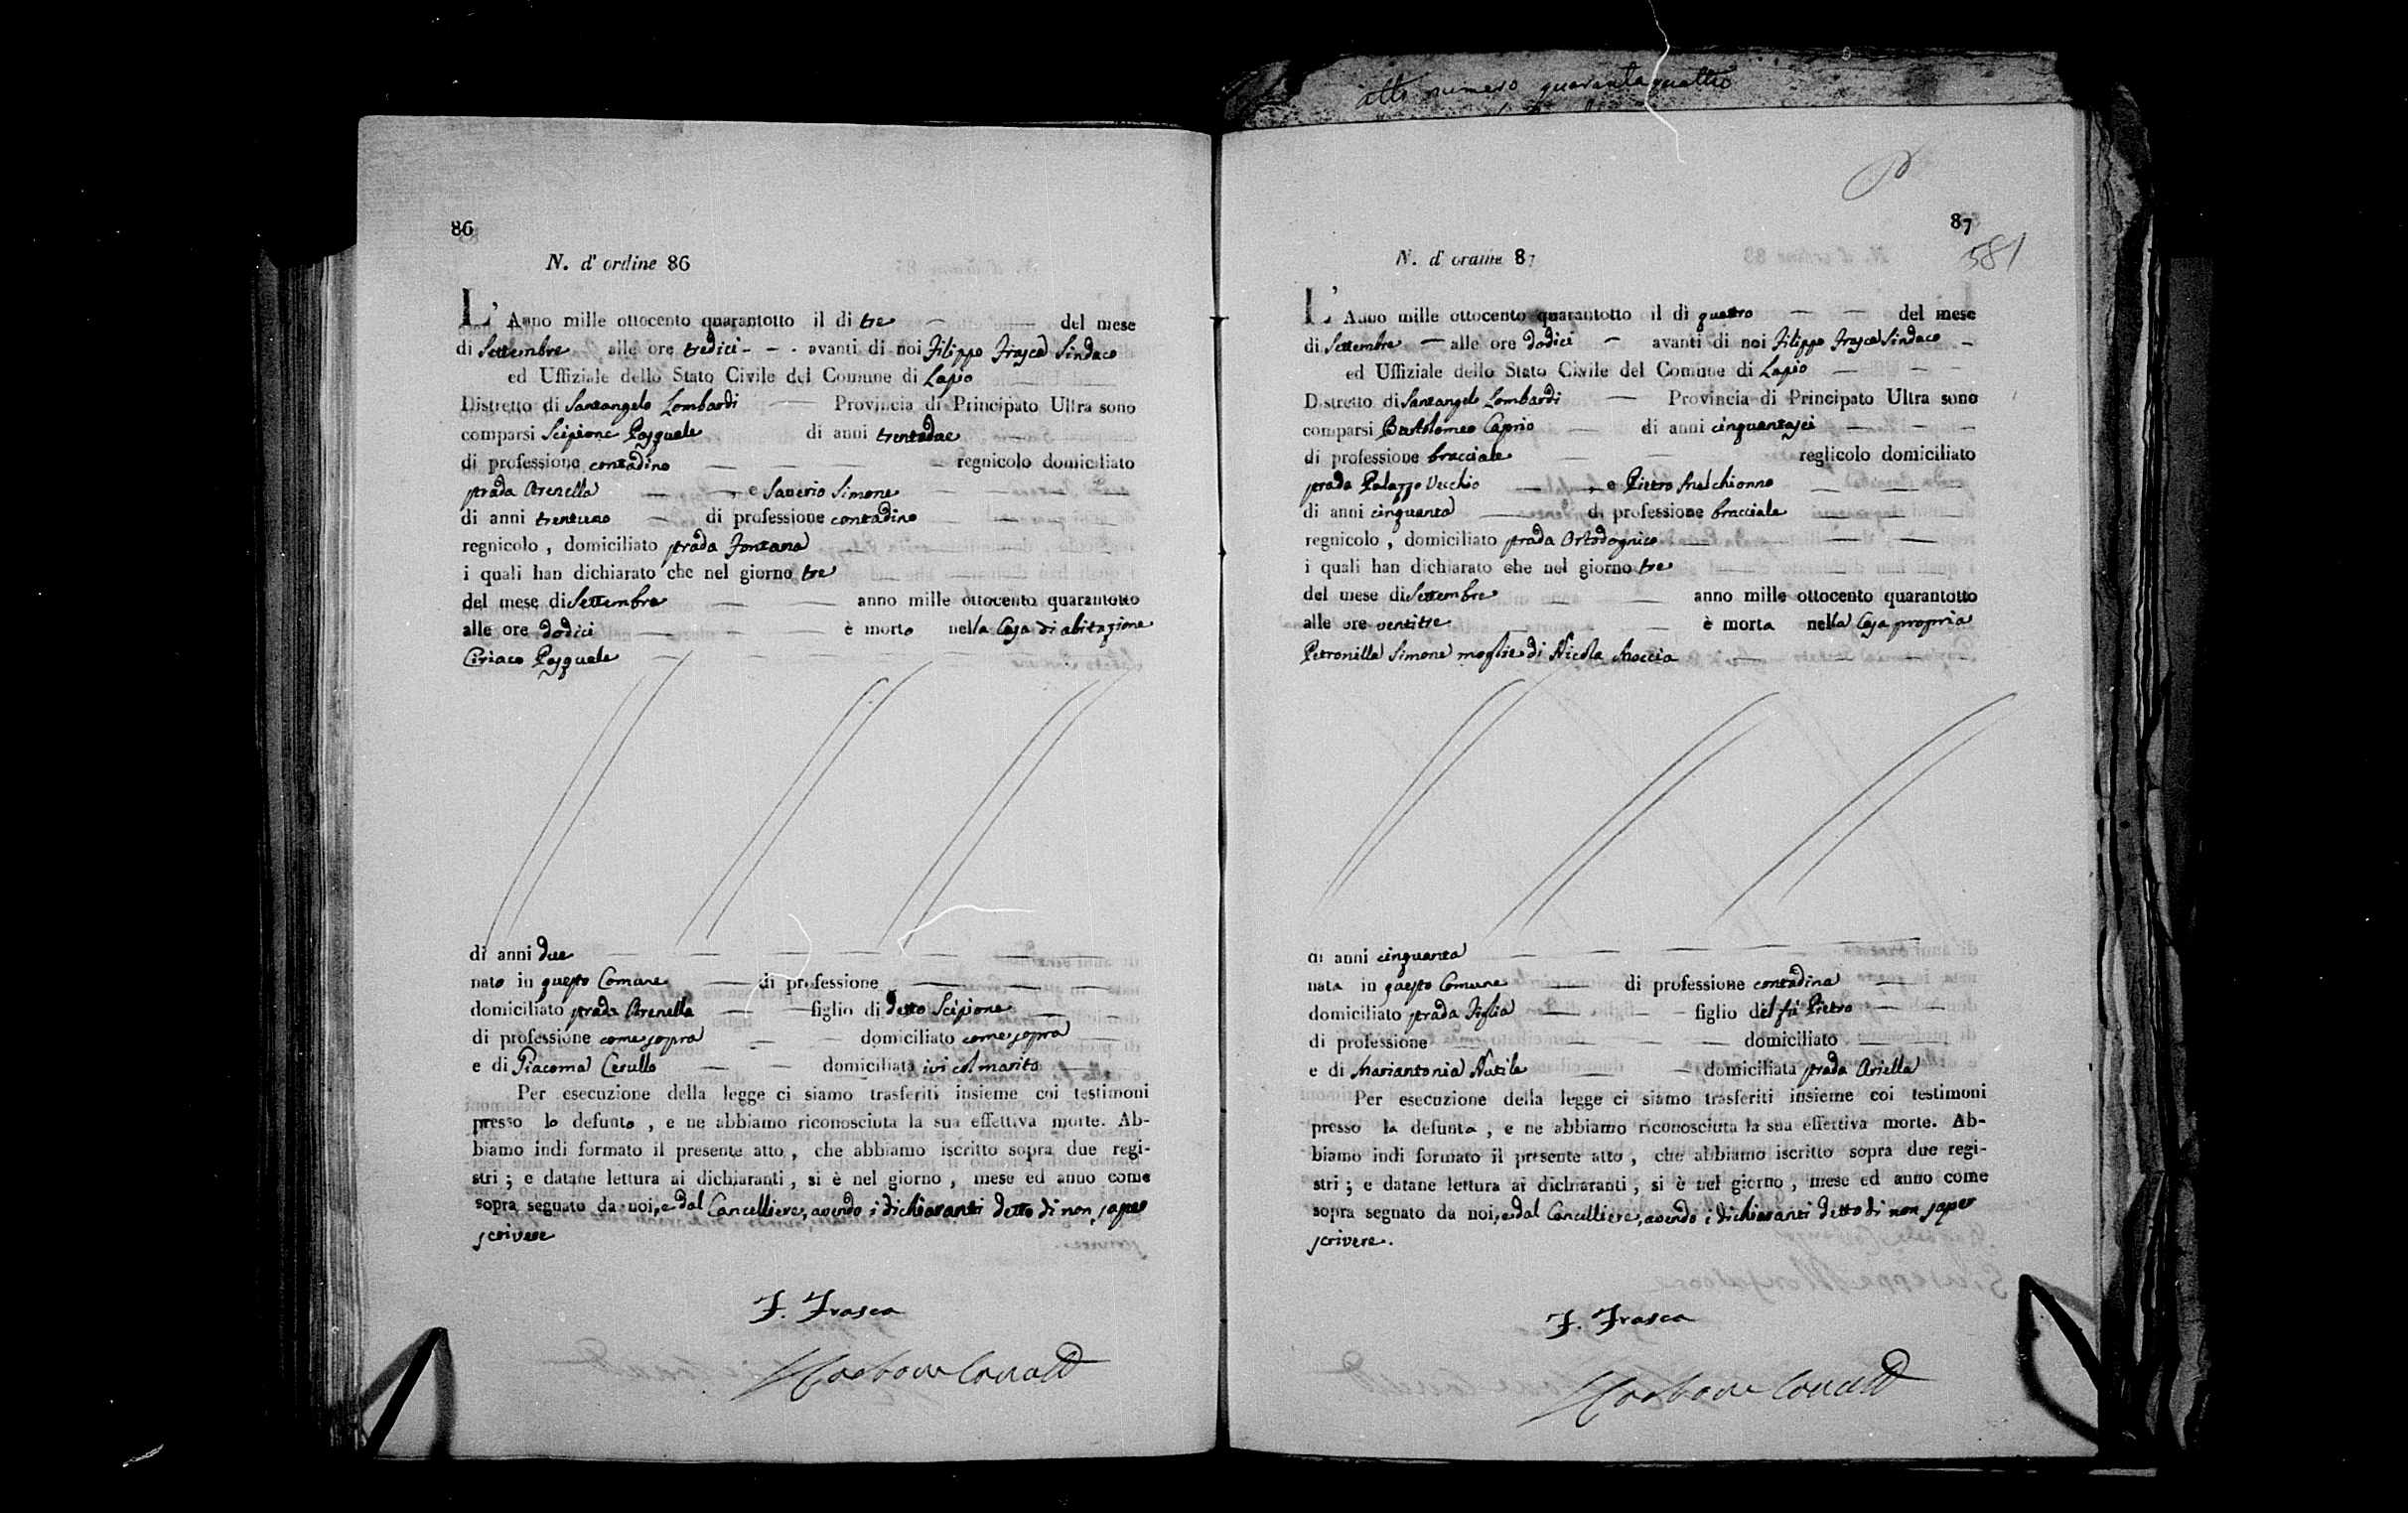 atto numero quaranta quattro
86
N. d' ordine 86
L' Anno mille ottocento quarantotto il di tre del mese
di Settembre alle ore tredici avanti di noi Filippo Frasca Sindaco
ed Uffiziale dello Stato Civile del Comune di Lapio
Distretto di Santangelo Lombardi Provincia di Principato Ultra sono
comparsi Scipione Pasquale di anni trentadue
di professione contadino regnicolo domiciliato
strada Arenella , e Saverio Simone
di anni trentuno di professione contadino
regnicolo , domiciliato strada Fontana
i quali han dichiarato che nel giorno tre
del mese di Settembre anno mille ottocento quarantotto
alle ore dodici è morto nella Casa di abitazione
Ciriaco Pasquale
di anni due
nato in questo Comune di professione
domiciliato strada Arenella figlio di detto Scipione
di professione come sopra domiciliato come sopra
e di Giacoma Cerullo domiciliata ivi col marito
Per esecuzione della legge ci siamo trasferiti insieme coi testimoni
presso lo defunto , e ne abbiamo riconosciuta la sua effettiva morte. Ab-
biamo indi formato il presente atto , che abbiamo iscritto sopra due regi-
stri ; e datane lettura ai dichiaranti , si è nel giorno , mese ed anno come
sopra segnato da noi, e dal Cancelliere, avendo i dichiaranti detto di non saper
scrivere
F. Frasca
87
581
N. d' ordine 87
L' Anno mille ottocento quarantotto il di quattro del mese
di Settembre alle ore dodici avanti di noi Filippo Frasca Sindaco
ed Uffiziale dello Stato Civile del Comune di Lapio
Distretto di Santangelo Lombardi Provincia di Principato Ultra sono
comparsi Bartolomeo Caprio di anni cinquantasei
di professione bracciale reglicolo domiciliato
strada Palazzo Vecchio , e Pietro Melchionno
di anni cinquanta di professione bracciale
regnicolo , domiciliato strada Ortodognico
i quali han dichiarato che nel giorno tre
del mese di Settembre anno mille ottocento quarantotto
alle ore ventitre è morta nella Casa propria
Petronilla Simone moglie di Nicola Moccia
di anni cinquanta
nata in questo Comune di professione contadina
domiciliato strada Figlia figlio del fù Pietro
di professione domiciliato
e di Mariantonia Nutile domiciliata strada Ariella
Per esecuzione della legge ci siamo trasferiti insieme coi testimoni
presso la defunta , e ne abbiamo riconosciuta la sua effettiva morte. Ab-
biamo indi formato il presente atto , che abbiamo iscritto sopra due regi-
stri ; e datane lettura ai dichiaranti , si è nel giorno , mese ed anno come
sopra segnato da noi, e dal Cancelliere, avendo i dichiaranti detto di non saper
scrivere.
F. Frasca